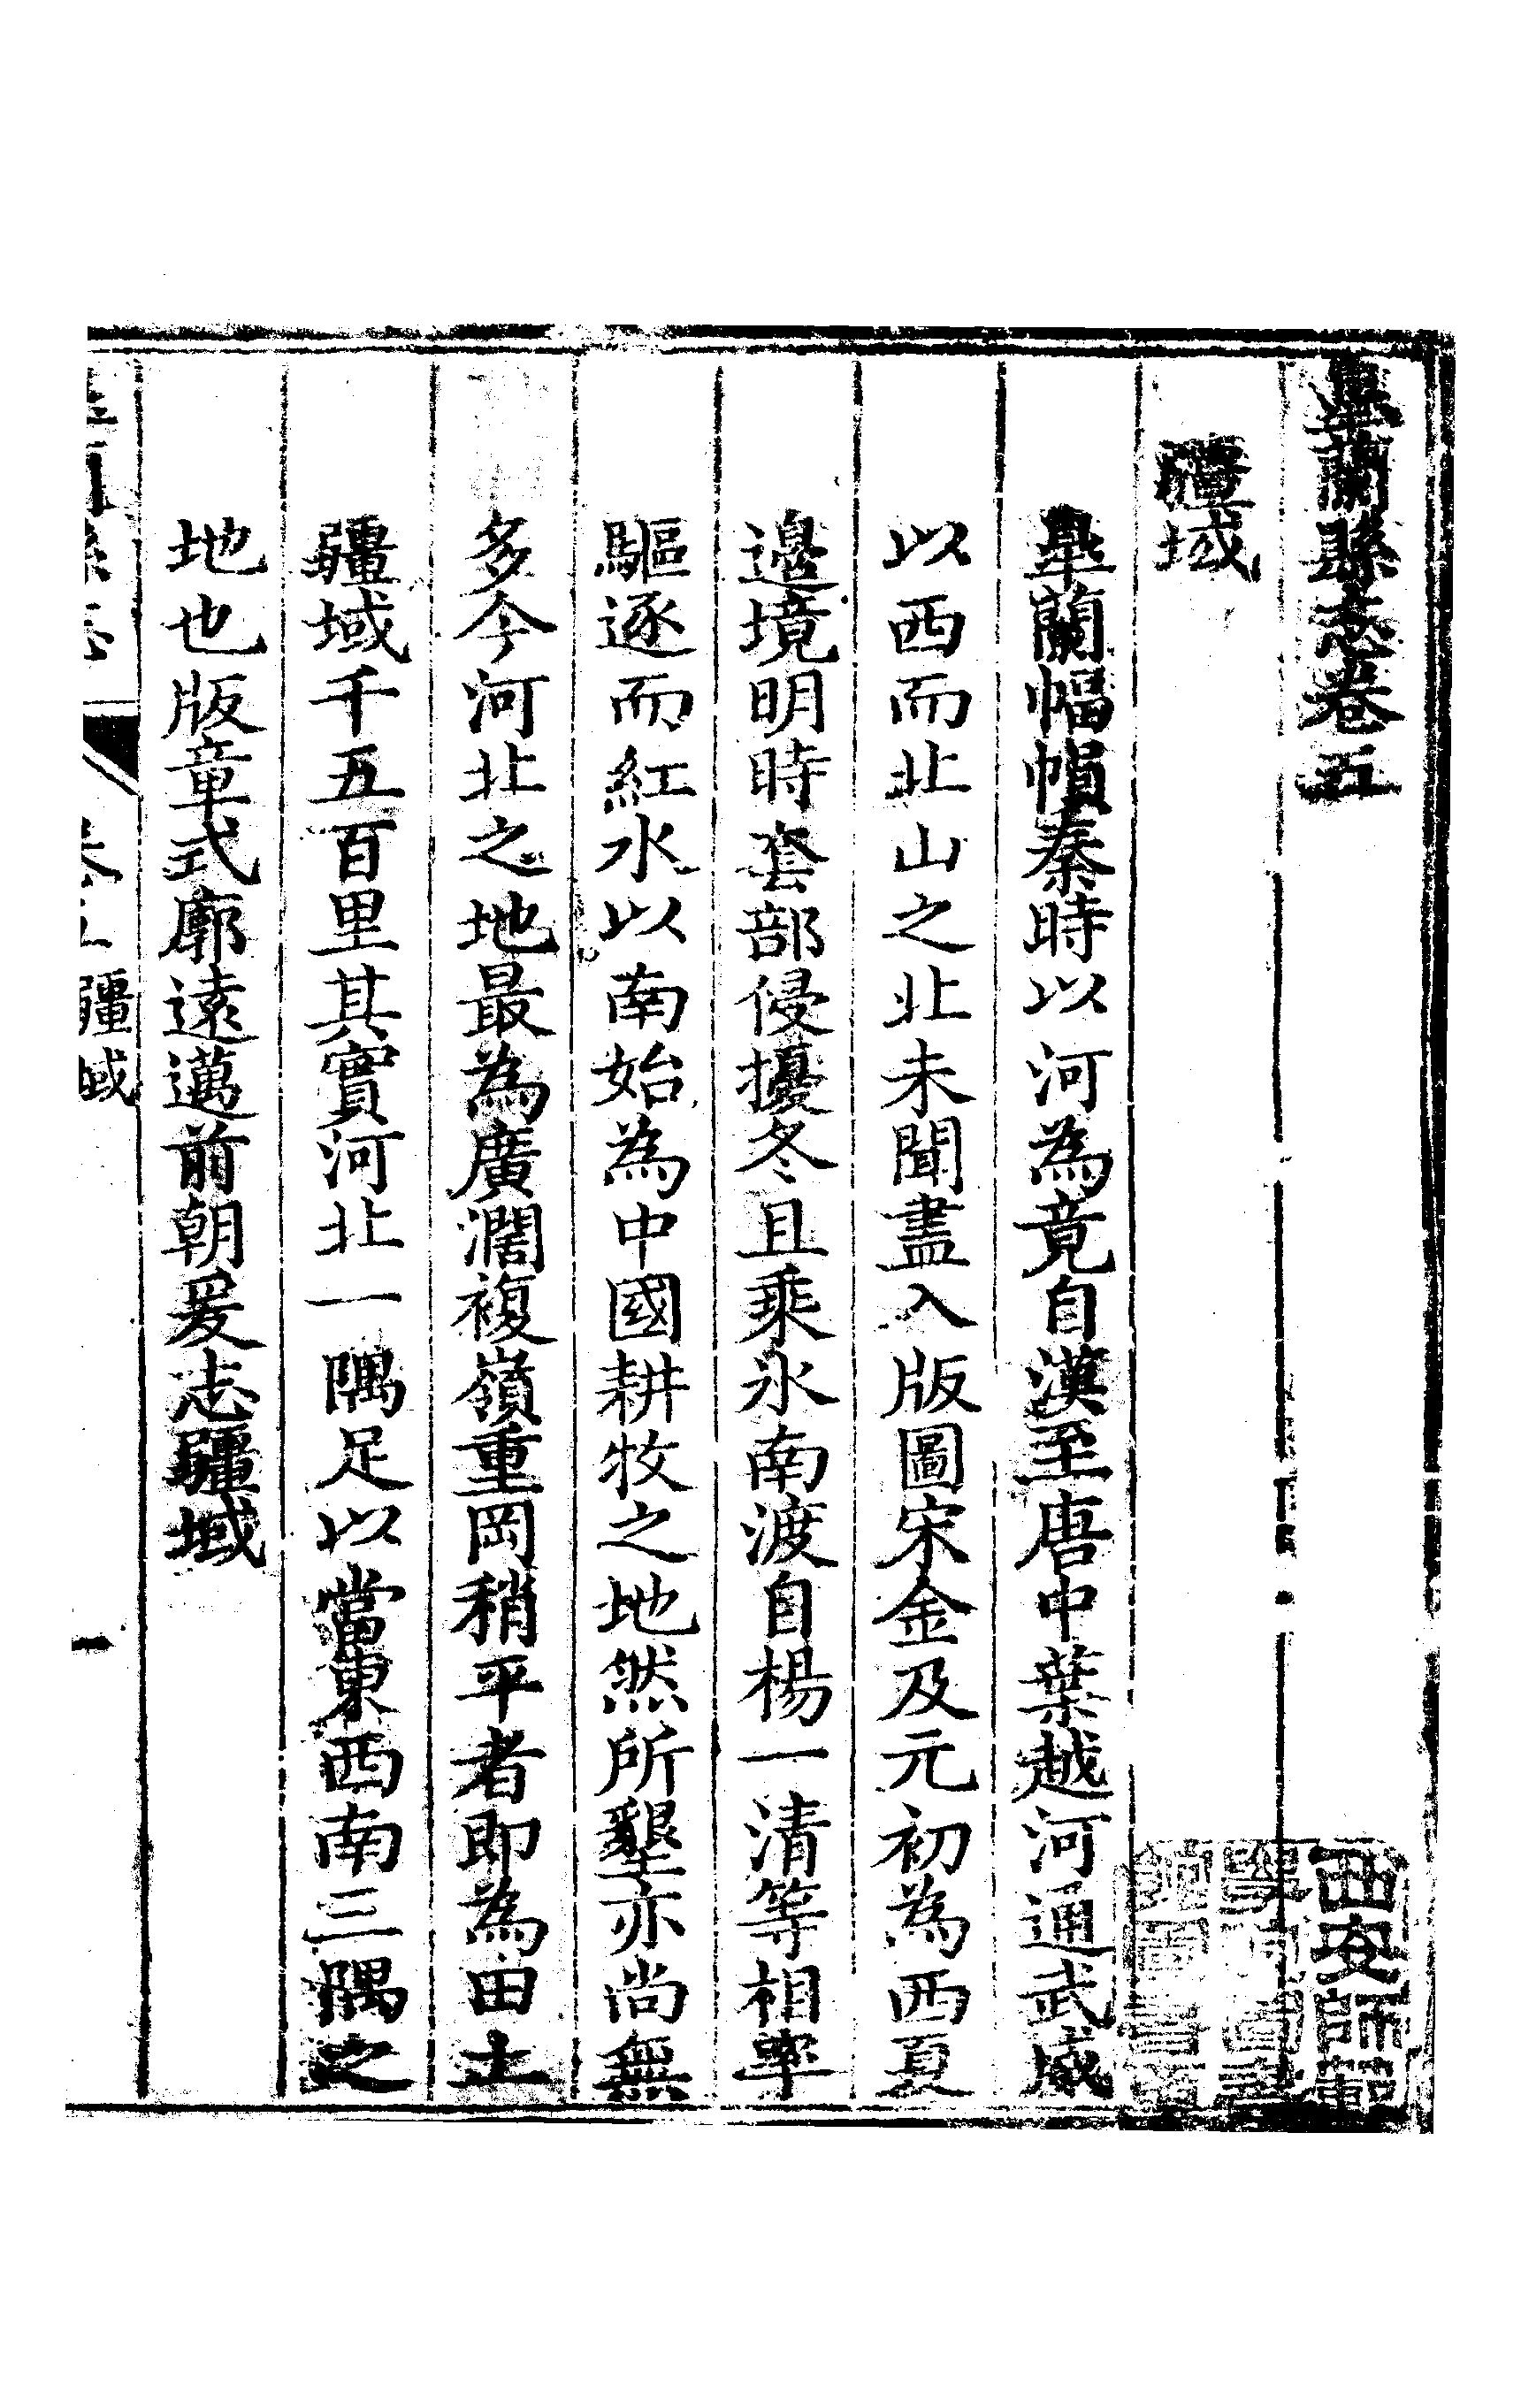 臯蘭縣志卷五
疆域
臯蘭幅幀秦時以河為竟自漢至唐中葉越河通武威
以西而北山之北未聞盡入版圖宋金及元初為西夏
邊境明時套部侵擾冬且乘氷南渡自楊一清等相率
驅逐而紅水以南始為中國耕牧之地然所墾亦尚無
多今河北之地最為廣濶複嶺重岡稍平者即為田土
疆域千五百里其實河北一隅足以當東西南三隅之
地也版章式廓遠邁前朝爰志疆域
疆域
一
西安師範